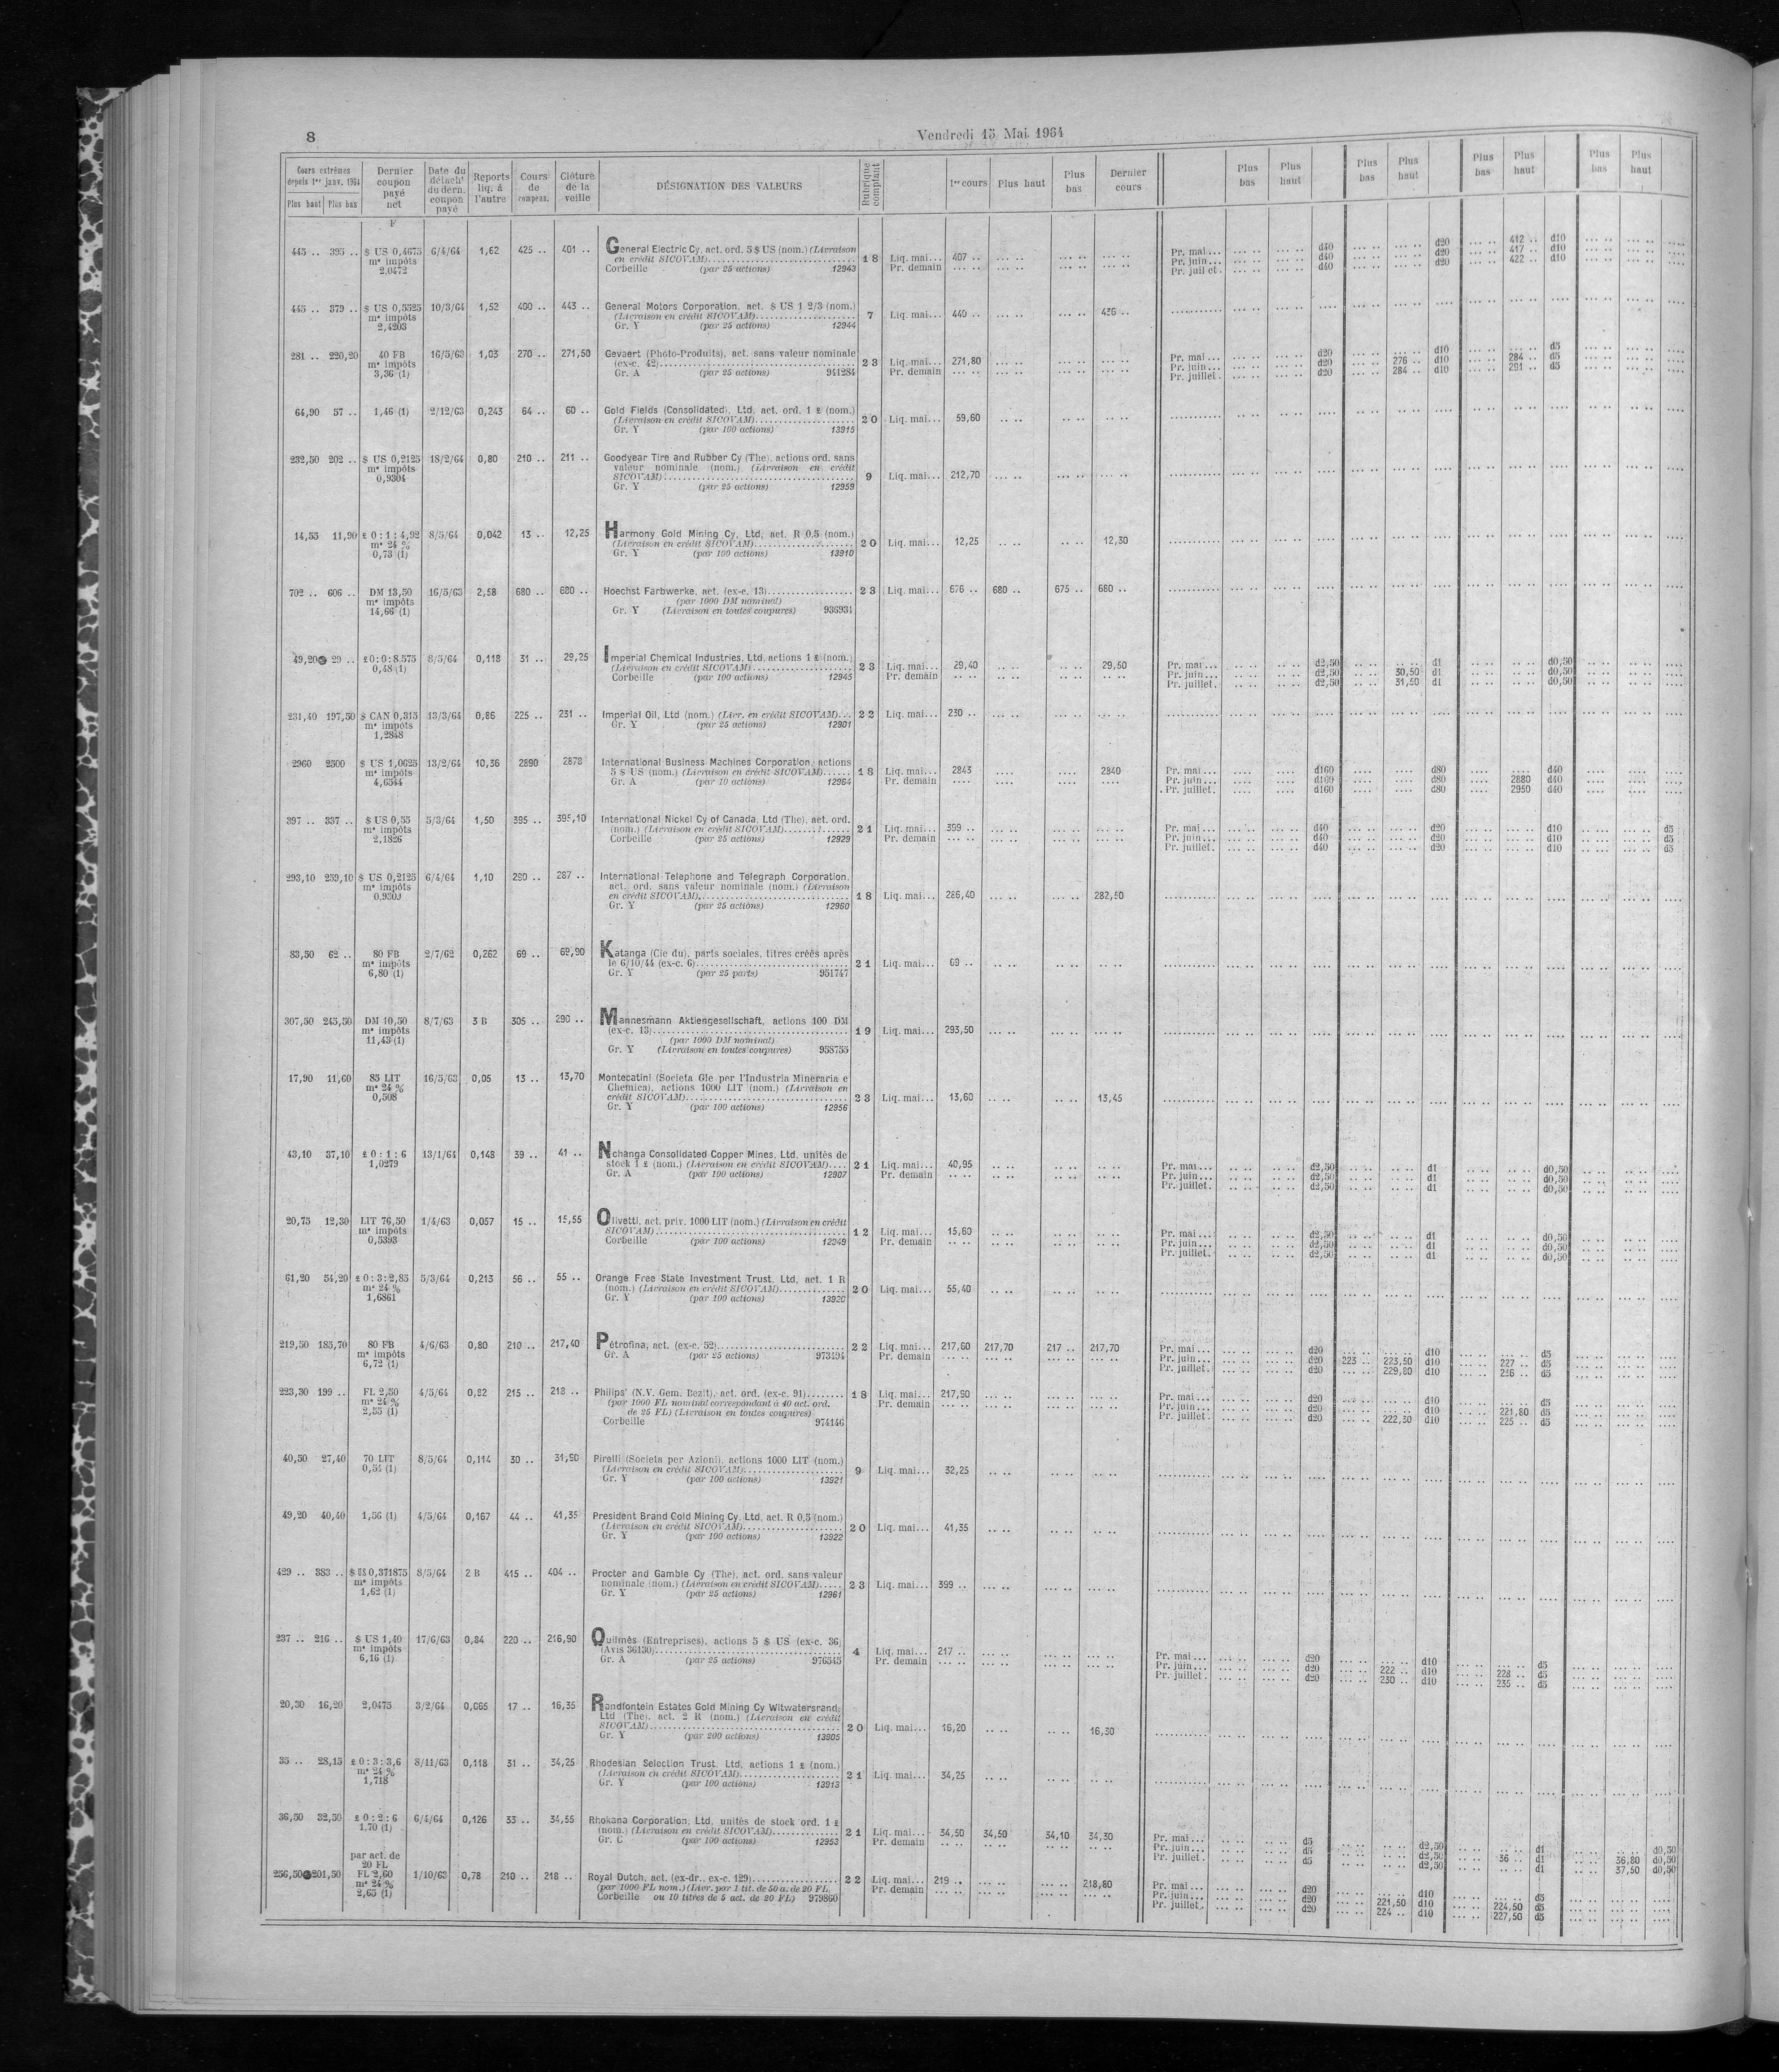 8
Vendredi 15 Mai 1964
Cours extrêmes depuis 1er janv. 1964 Plus haut Plus bas | Dernier coupon payé net | Date du détacht du dern. coupon payé | Reports liq. à l'autre | Cours de compens. | Clôture de la veille | DÉSIGNATION DES VALEURS | Rubrique comptant | 1er cours | Plus haut | Plus bas | Dernier cours | Plus bas | Plus haut | Plus bas | Plus haut | Plus bas | Plus haut | Plus bas | Plus haut
F
445 .. 395 .. $ US 0,4675 6/4/64 1,62 425 .. 401 .. General Electric Cy, act. ord. 5 $ US (nom.) (Livraison
m* impôts en crédit SICOVAM) 18 Liq. mai... 407 .. Pr. mai... d40 d20 412 .. d10
2,0472 Corbeille (par 25 actions) 12943 Pr. demain Pr. juin... d40 d20 417 .. d10
Pr. juillet. d40 d20 422 .. d10
445 .. 379 .. $ US 0,5525 10/3/64 1,52 400 .. 443 .. General Motors Corporation, act. $ US 1 2/3 (nom.)
m* impôts (Livraison en crédit SICOVAM) 7 Liq. mai... 440 .. 436 ..
2,4203 Gr. Y (par 25 actions) 12944
281 .. 220,20 40 FB 16/5/63 1,03 270 .. 271,50 Gevaert (Photo-Produits), act. sans valeur nominale
m* impôts (ex-c. 42) 23 Liq. mai... 271,80 Pr. mai... d20 d10 d5
3,36 (1) Gr. A (par 25 actions) 941284 Pr. demain Pr. juin... d20 276 .. d10 284 .. d5
Pr. juillet. d20 284 .. d10 291 .. d5
64,90 57 .. 1,46 (1) 2/12/63 0,243 64 .. 60 .. Gold Fields (Consolidated), Ltd, act. ord. 1 £ (nom.)
(Livraison en crédit SICOVAM) 20 Liq. mai... 59,60
Gr. Y (par 100 actions) 13915
232,50 202 .. $ US 0,2125 18/2/64 0,80 210 .. 211 .. Goodyear Tire and Rubber Cy (The), actions ord. sans
m* impôts valeur nominale (nom.) (Livraison en crédit
0,9304 SICOVAM) 9 Liq. mai... 212,70
Gr. Y (par 25 actions) 12959
14,55 11,90 £ 0 : 1 : 4,92 8/5/64 0,042 13 .. 12,25 Harmony Gold Mining Cy, Ltd, act. R 0,5 (nom.)
m* 24 % (Livraison en crédit SICOVAM) 20 Liq. mai... 12,25 12,30
0,73 (1) Gr. Y (par 100 actions) 13910
702 .. 606 .. DM 13,50 16/5/63 2,58 680 .. 680 .. Hoechst Farbwerke, act. (ex-c. 13) 23 Liq. mai... 676 .. 680 .. 675 .. 680 ..
m* impôts (par 1000 DM nominal)
14,66 (1) Gr. Y (Livraison en toutes coupures) 936934
49,20 29 .. £ 0:0:8.575 8/5/64 0,118 31 .. 29,25 Imperial Chemical Industries, Ltd, actions 1 £ (nom.)
0,48 (1) (Livraison en crédit SICOVAM) 23 Liq. mai... 29,40 29,50 Pr. mai... d2,50 d1 d0,50
Corbeille (par 100 actions) 12945 Pr. demain Pr. juin... d2,50 30,50 d1 d0,50
Pr. juillet. d2,50 31,50 d1 d0,50
231,40 197,50 $ CAN 0,315 13/3/64 0,86 225 .. 231 .. Imperial Oil, Ltd (nom.) (Livr. en crédit SICOVAM) 22 Liq. mai... 230 ..
m* impôts Gr. Y (par 25 actions) 12901
1,2848
2960 2300 $ US 1,0625 13/2/64 10,36 2890 2878 International Business Machines Corporation, actions
m* impôts 5 $ US (nom.) (Livraison en crédit SICOVAM) 18 Liq. mai... 2843 2840 Pr. mai... d160 d80 d40
4,6544 Gr. A (par 10 actions) 12964 Pr. demain Pr. juin... d160 d80 2880 d40
Pr. juillet. d160 d80 2950 d40
397 .. 337 .. $ US 0,55 5/3/64 1,50 395 .. 395,10 International Nickel Cy of Canada, Ltd (The), act. ord.
m* impôts (nom.) (Livraison en crédit SICOVAM) 21 Liq. mai... 399 .. Pr. mai... d40 d20 d10 d5
2,1826 Corbeille (par 25 actions) 12929 Pr. demain Pr. juin... d40 d20 d10 d5
Pr. juillet. d40 d20 d10 d5
293,10 259,10 $ US 0,2125 6/4/64 1,10 290 .. 287 .. International Telephone and Telegraph Corporation,
m* impôts act. ord. sans valeur nominale (nom.) (Livraison
en crédit SICOVAM) 18 Liq. mai... 286,40 282,50
Gr. Y (par 25 actions) 12960
83,50 62 .. 80 FB 2/7/62 0,262 69 .. 69,90 Katanga (Cie du), parts sociales, titres créés après
m* impôts le 6/10/44 (ex-c. 6) 21 Liq. mai... 69 ..
6,80 (1) Gr. Y (par 25 parts) 951747
307,50 245,50 DM 10,50 8/7/63 3 B 305 .. 290 .. Mannesmann Aktiengesellschaft, actions 100 DM
m* impôts (ex-c. 13) 19 Liq. mai... 293,50
11,43 (1) (par 1000 DM nominal)
Gr. Y (Livraison en toutes coupures) 958755
17,90 11,60 85 LIT 16/5/63 0,05 13 .. 13,70 Montecatini (Societa Gle per l'Industria Mineraria e
m* 24 % Chemica), actions 1000 LIT (nom.) (Livraison en
0,508 crédit SICOVAM) 23 Liq. mai... 13,60 13,45
Gr. Y (par 100 actions) 12956
43,10 37,10 £ 0 : 1 : 6 13/1/64 0,148 39 .. 41 .. Nchanga Consolidated Copper Mines, Ltd, unités de
1,0279 stock 1 £ (nom.) (Livraison en crédit SICOVAM) 21 Liq. mai... 40,95 Pr. mai... d2,50 d1 d0,50
Gr. A (par 100 actions) 12907 Pr. demain Pr. juin... d2,50 d1 d0,50
Pr. juillet. d2,50 d1 d0,50
20,75 12,30 LIT 76,50 1/4/63 0,057 15 .. 15,55 Olivetti, act. priv. 1000 LIT (nom.) (Livraison en crédit
m* impôts SICOVAM) 12 Liq. mai... 15,60 Pr. mai... d2,50 d1 d0,50
0,5393 Corbeille (par 100 actions) 12949 Pr. demain Pr. juin... d2,50 d1 d0,50
Pr. juillet. d2,50 d1 d0,50
61,20 54,20 £ 0 : 3 : 2,85 5/3/64 0,213 56 .. 55 .. Orange Free State Investment Trust, Ltd, act. 1 R
m* 24 % (nom.) (Livraison en crédit SICOVAM) 20 Liq. mai... 55,40
1,6861 Gr. Y (par 100 actions) 13920
219,50 185,70 80 FB 4/6/63 0,80 210 .. 217,40 Pétrofina, act. (ex-c. 52) 22 Liq. mai... 217,60 217,70 217 .. 217,70 Pr. mai... d20 d10 d5
m* impôts Gr. A (par 25 actions) 973494 Pr. demain Pr. juin... d20 223 .. 223,50 d10 227 .. d5
6,72 (1) Pr. juillet. d20 229,80 d10 236 .. d5
223,30 199 .. FL 2,50 4/5/64 0,82 215 .. 218 .. Philips' (N.V. Gem. Bezit), act. ord. (ex-c. 91) 18 Liq. mai... 217,90 Pr. mai... d20 d10 d5
m* 24 % (par 1000 FL nominal correspondant à 40 act. ord. Pr. demain Pr. juin... d20 d10 221,80 d5
2,55 (1) de 25 FL) (Livraison en toutes coupures) Pr. juillet. d20 222,30 d10 225 .. d5
Corbeille 974146
40,50 27,40 70 LIT 8/5/64 0,114 30 .. 31,90 Pirelli (Societa per Azioni), actions 1000 LIT (nom.)
0,54 (1) (Livraison en crédit SICOVAM) 9 Liq. mai... 32,25
Gr. Y (par 100 actions) 13921
49,20 40,40 1,56 (1) 4/5/64 0,167 44 .. 41,35 President Brand Gold Mining Cy, Ltd, act. R 0,5 (nom.)
(Livraison en crédit SICOVAM) 20 Liq. mai... 41,35
Gr. Y (par 100 actions) 13922
429 .. 383 .. $ US 0,371875 8/5/64 2 B 415 .. 404 .. Procter and Gamble Cy (The), act. ord. sans valeur
m* impôts nominale (nom.) (Livraison en crédit SICOVAM) 23 Liq. mai... 399 ..
1,62 (1) Gr. Y (par 25 actions) 12961
237 .. 216 .. $ US 1,40 17/6/63 0,84 220 .. 216,90 Quilmès (Entreprises), actions 5 $ US (ex-c. 36,
m* impôts (Avis 36130) 4 Liq. mai... 217 .. Pr. mai... d20 d10 d5
6,16 (1) Gr. A (par 25 actions) 976545 Pr. demain Pr. juin... d20 222 .. d10 228 .. d5
Pr. juillet. d20 230 .. d10 235 .. d5
20,30 16,20 2,0475 3/2/64 0,065 17 .. 16,35 Randfontein Estates Gold Mining Cy Witwatersrand,
Ltd (The), act. 2 R (nom.) (Livraison en crédit
SICOVAM) 20 Liq. mai... 16,20 16,30
Gr. Y (par 200 actions) 13905
35 .. 28,15 £ 0 : 3 : 3,6 8/11/63 0,118 31 .. 34,25 Rhodesian Selection Trust, Ltd, actions 1 £ (nom.)
m* 24 % (Livraison en crédit SICOVAM) 21 Liq. mai... 34,25
1,718 Gr. Y (par 100 actions) 13913
36,50 32,50 £ 0 : 2 : 6 6/4/64 0,126 33 .. 34,55 Rhokana Corporation, Ltd, unités de stock ord. 1 £
1,70 (1) (nom.) (Livraison en crédit SICOVAM) 21 Liq. mai... 34,50 34,50 34,10 34,30 Pr. mai... d5 d2,50 d1 d0,50
Gr. C (par 100 actions) 12953 Pr. demain Pr. juin... d5 d2,50 36 .. d1 36,80 d0,50
Pr. juillet. d5 d2,50 d1 37,50 d0,50
par act. de
20 FL
256,50 201,50 FL 2,60 1/10/63 0,78 210 .. 218 .. Royal Dutch, act. (ex-dr., ex-c. 129) 22 Liq. mai... 219 .. 218,80 Pr. mai... d20 d10 d5
m* 24 % (par 1000 FL nom.) (Livr. par 1 tit. de 50 a. de 20 FL Pr. demain Pr. juin... d20 221,50 d10 224,50 d5
2,65 (1) Corbeille ou 10 titres de 5 act. de 20 FL) 979860 Pr. juillet. d20 224 .. d10 227,50 d5